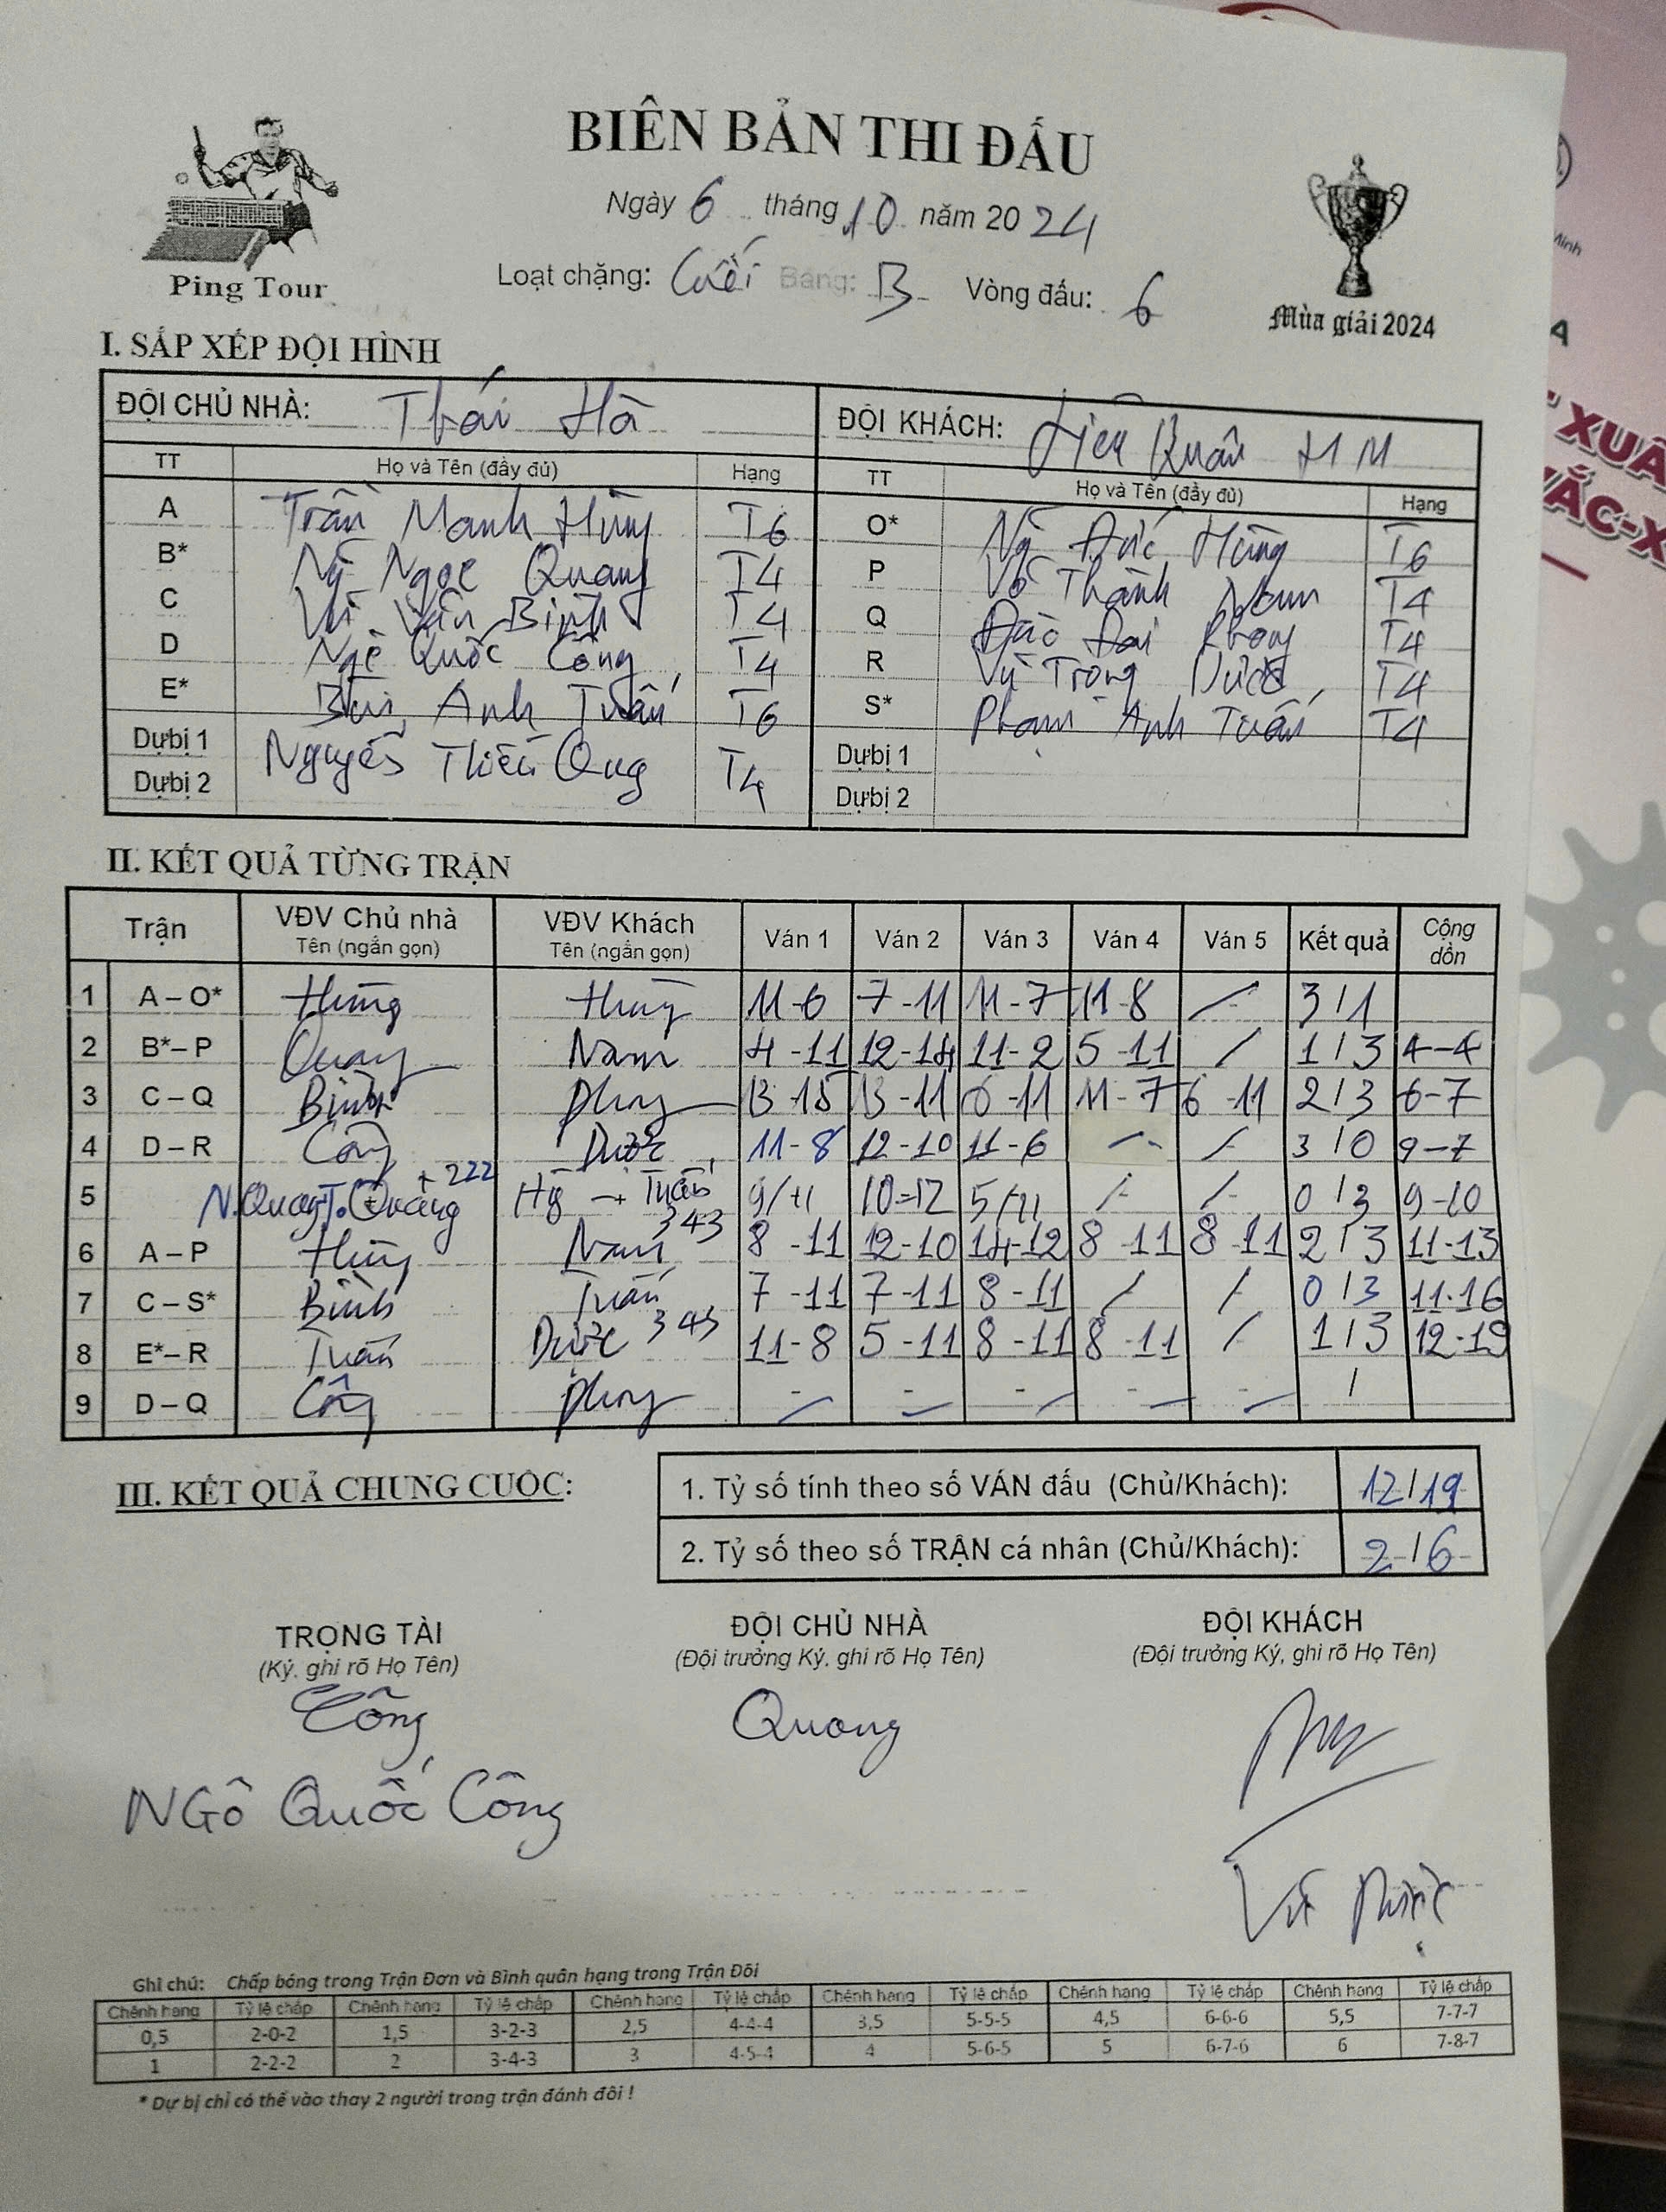 BIÊN BẢN THI ĐẤU
Ngày 6 tháng 10 năm 2024
Loạt chặng: Cuối Bảng: B Vòng đấu: 6
Ping Tour
Mùa giải 2024
I. SẮP XẾP ĐỘI HÌNH
ĐỘI CHỦ NHÀ: Thái Hà ĐỘI KHÁCH: Liên Quân HM
TT Họ và Tên (đầy đủ) Hạng TT Họ và Tên (đầy đủ) Hạng
A Trần Mạnh Hùng T6 O* Ng Đức Hùng T6
B* Ng Ngọc Quang T4 P Võ Thành Nam T4
C Vũ Văn Bình T4 Q Đào Đại Phong T4
D Ngô Quốc Công T4 R Vũ Trọng Dược T4
E* Bùi Anh Tuấn T6 S* Phạm Anh Tuấn T4
Dự bị 1 Nguyễn Thiều Quang T4 Dự bị 1
Dự bị 2 Dự bị 2
II. KẾT QUẢ TỪNG TRẬN
Trận VĐV Chủ nhà VĐV Khách Ván 1 Ván 2 Ván 3 Ván 4 Ván 5 Kết quả Cộng dồn
Tên (ngắn gọn) Tên (ngắn gọn)
1 A – O* Hùng Hùng 11-6 7-11 11-7 11-8 - 3/1
2 B* – P Quang Nam 4-11 12-14 11-2 5-11 / 1/3 4-4
3 C – Q Bình Phong 13-15 13-11 6-11 11-7 6-11 2/3 6-7
4 D – R Công Dược 11-8 12-10 11-6 - - 3/0 9-7
5 N.Quang T.Quang +222 Hg + Tuấn 9/11 10-12 5/11 - - 0/3 9-10
6 A – P Hùng Nam 343 8-11 12-10 14-12 8-11 8-11 2/3 11-13
7 C – S* Bình Tuấn 7-11 7-11 8-11 / / 0/3 11-16
8 E* – R Tuấn Dược 343 11-8 5-11 8-11 8-11 - 1/3 12-19
9 D – Q Công Phong - - - - - /
III. KẾT QUẢ CHUNG CUỘC:
1. Tỷ số tính theo số VÁN đấu (Chủ/Khách): 12/19
2. Tỷ số theo số TRẬN cá nhân (Chủ/Khách): 2/6
TRỌNG TÀI ĐỘI CHỦ NHÀ ĐỘI KHÁCH
(Ký, ghi rõ Họ Tên) (Đội trưởng Ký, ghi rõ Họ Tên) (Đội trưởng Ký, ghi rõ Họ Tên)
Công Quang
NGÔ Quốc Công
Vũ Dược
Ghi chú: Chấp bóng trong Trận Đơn và Bình quân hạng trong Trận Đôi
Chênh hạng Tỷ lệ chấp Chênh hạng Tỷ lệ chấp Chênh hạng Tỷ lệ chấp Chênh hạng Tỷ lệ chấp Chênh hạng Tỷ lệ chấp Chênh hạng Tỷ lệ chấp
0,5 2-0-2 1,5 3-2-3 2,5 4-4-4 3,5 5-5-5 4,5 6-6-6 5,5 7-7-7
1 2-2-2 2 3-4-3 3 4-5-4 4 5-6-5 5 6-7-6 6 7-8-7
* Dự bị chỉ có thể vào thay 2 người trong trận đánh đôi !